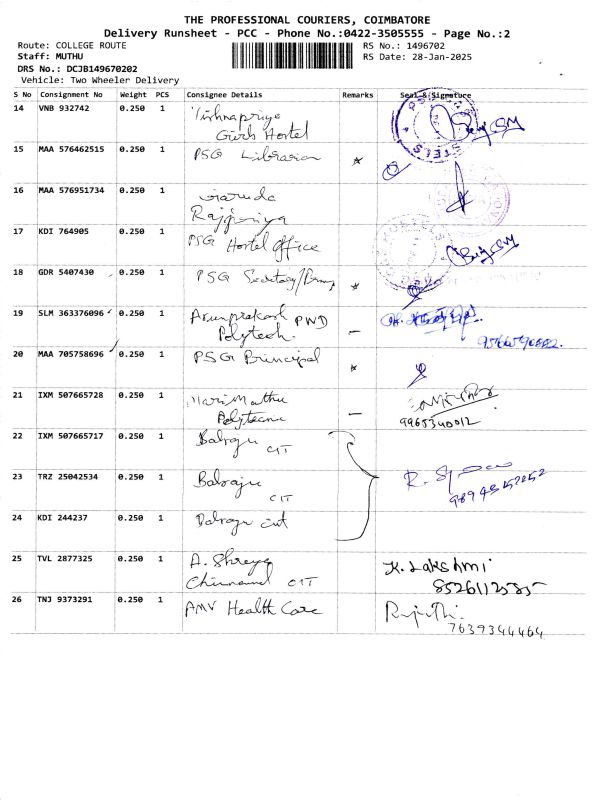 THE PROFESSIONAL COURIERS, COIMBATORE
Delivery Runsheet - PCC - Phone No.:0422-3505555 - Page No.:2
Route: COLLEGE ROUTE
RS No.: 1496702
Staff: MUTHU
RS Date: 28-Jan-2025
DRS No.: DCJB149670202
Vehicle: Two Wheeler Delivery
S No Consignment No Weight PCS Consignee Details Remarks Seal & Signature
14 VNB 932742 0.250 1
Girls Hostel
15 MAA 576462515 0.250 1 PSG Librarian
16 MAA 576951734 0.250 1
17 KDI 764905 0.250 1 PSG Hostel Office
18 GDR 5407430 0.250 1 PSG
19 SLM 363376096 0.250 1 Arunprakash PWD
Polytech.
20 MAA 705758696 0.250 1 PSG Principal
21 IXM 507665728 0.250 1 MariMuthu
Polytecnic
9965340012
22 IXM 507665717 0.250 1
CIT
23 TRZ 25042534 0.250 1 Balraju
CIT
R.
24 KDI 244237 0.250 1 Balraju cit
25 TVL 2877325 0.250 1 A. Shreya
CIT
K. Lakshmi
26 TNJ 9373291 0.250 1 AMV Health Care
7639344464